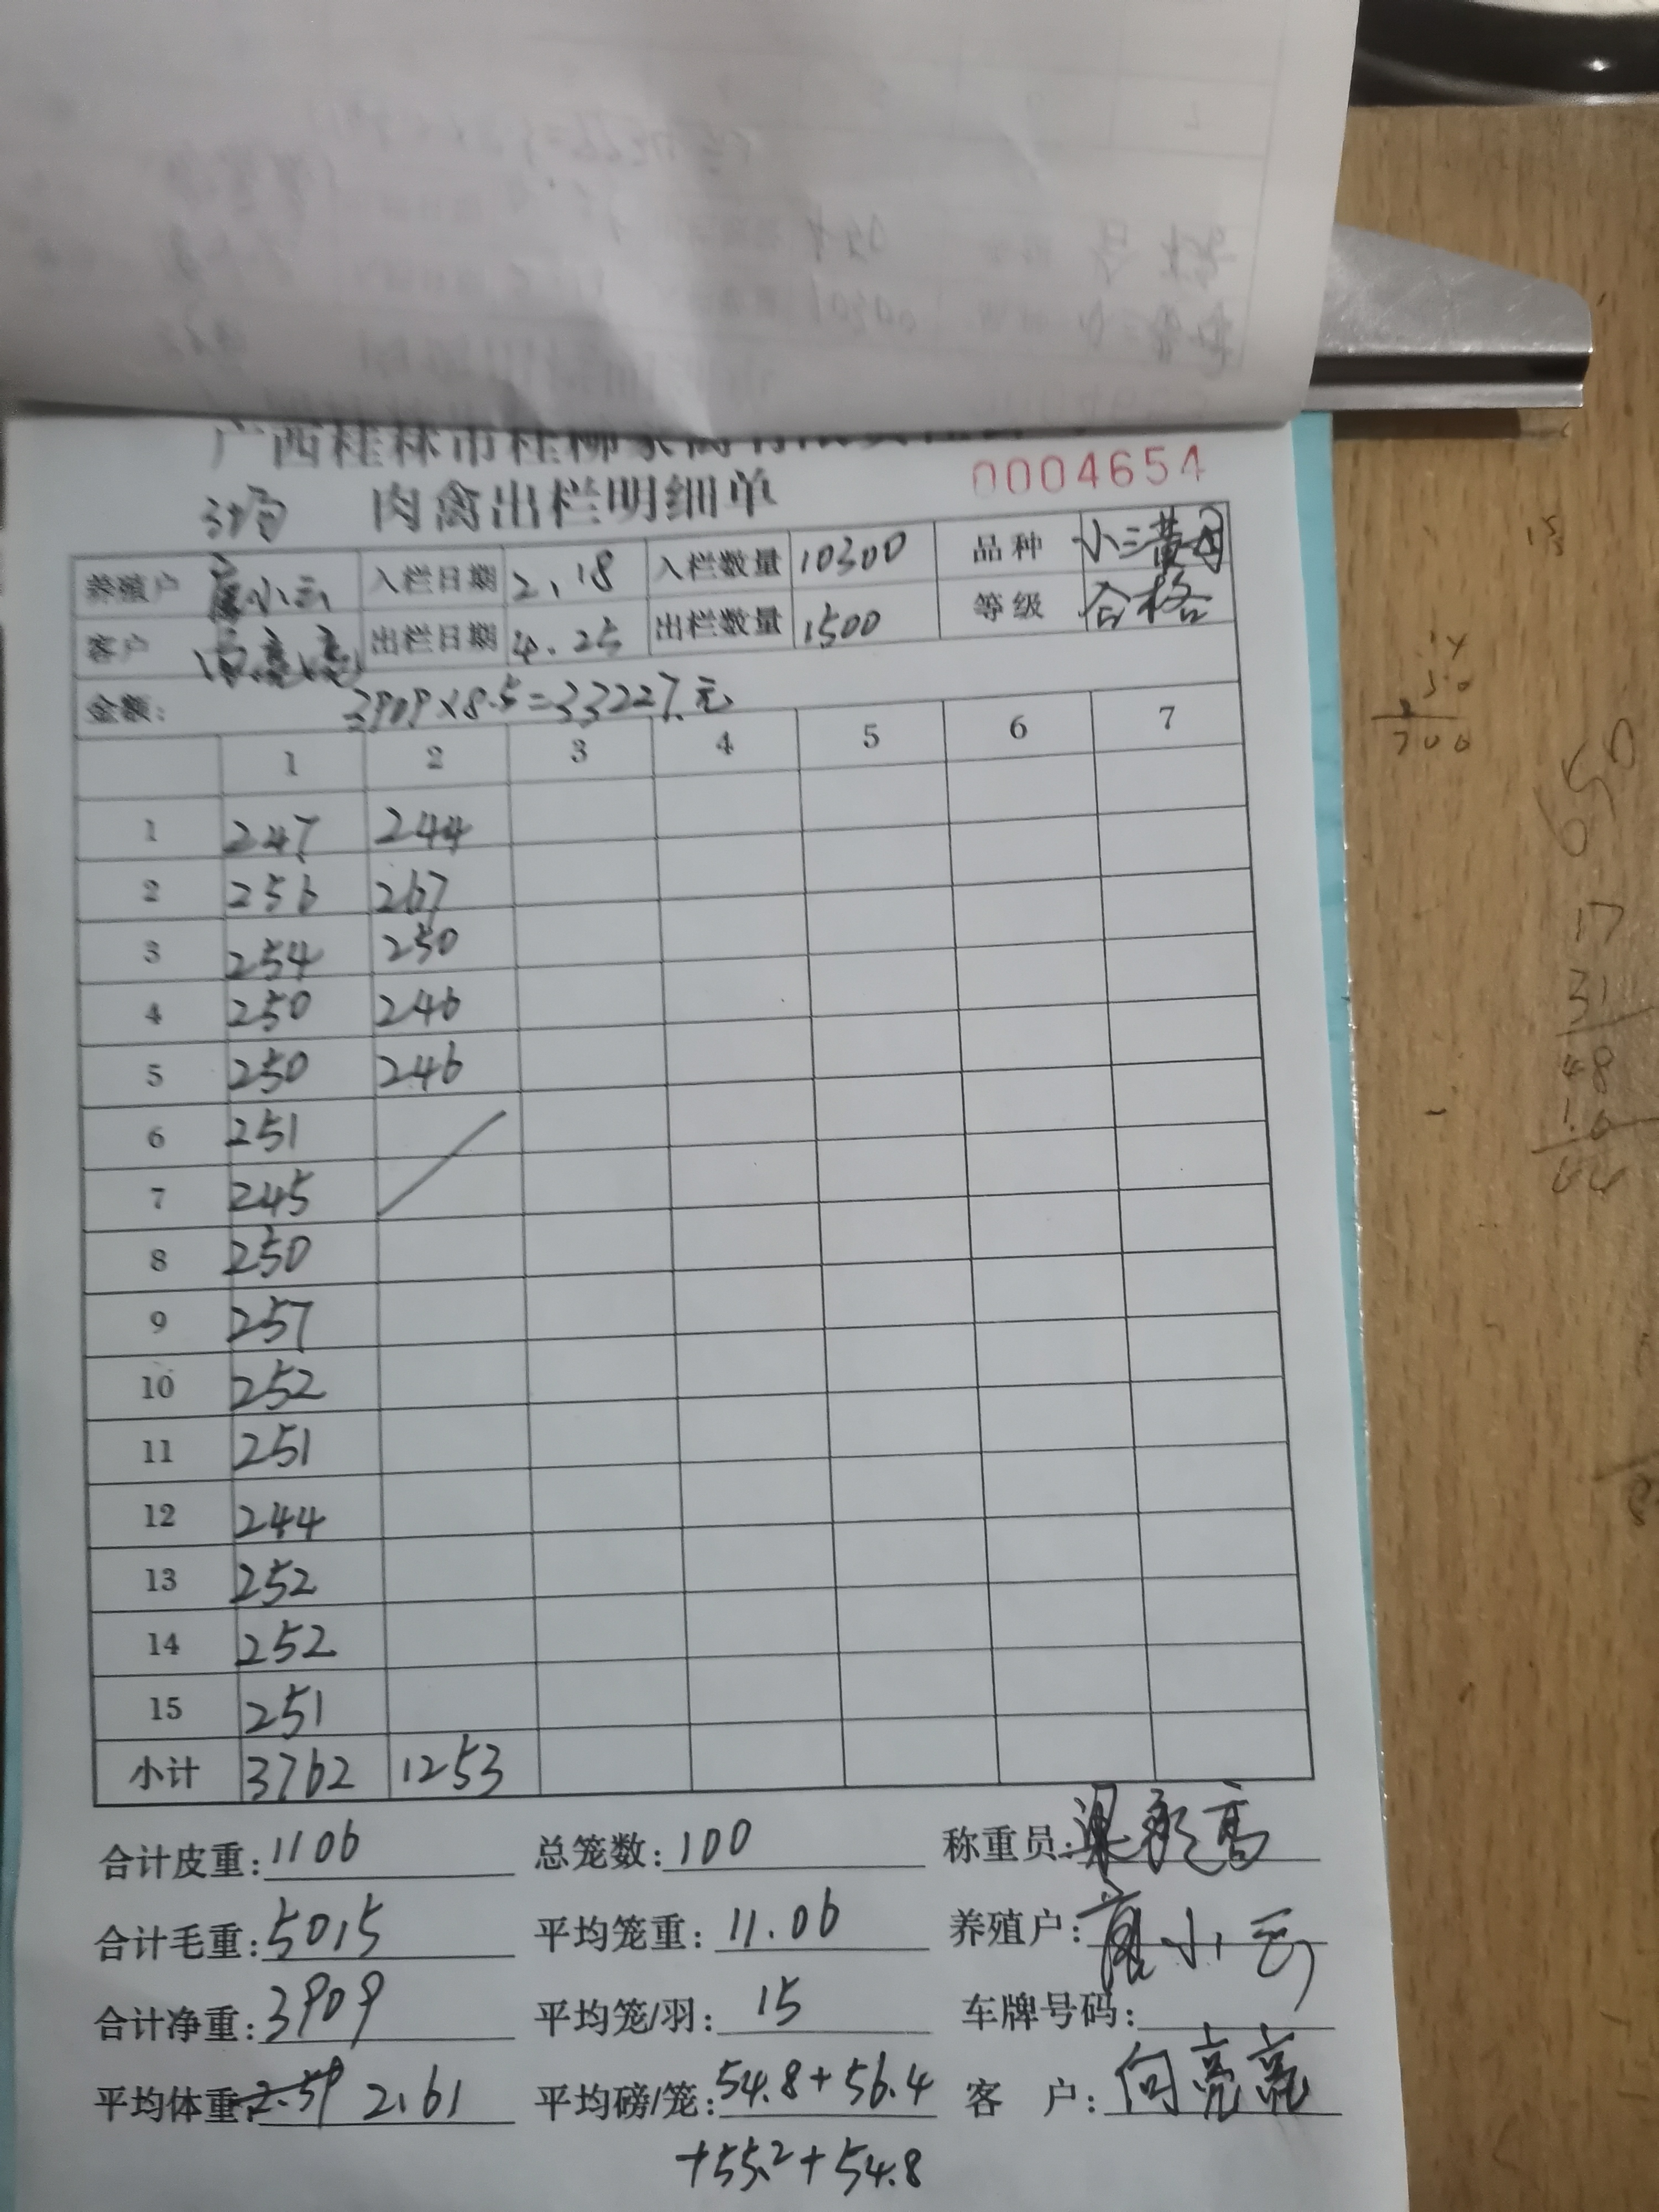 广西桂林市桂柳家禽有限责任公司
肉禽出栏明细单 0004654
养殖户 唐小云 入栏日期 2.18 入栏数量 10300 品种 小三黄母
客户 向亮亮 出栏日期 4.25 出栏数量 1500 等级 合格
金额: 3909×8.5=33227元
1 2 3 4 5 6 7
1 247 244
2 256 267
3 254 250
4 250 246
5 250 246
6 251
7 245
8 250
9 257
10 252
11 251
12 244
13 252
14 252
15 251
小计 3762 1253
合计皮重: 1106 总笼数: 100 称重员:
合计毛重: 5015 平均笼重: 11.06 养殖户: 唐小云
合计净重: 3909 平均笼/羽: 15 车牌号码:
平均体重: 2.59 2.61 平均磅/笼: 54.8+56.4 客 户: 向亮亮
+55.2+54.8
650
17
31
48
16
64